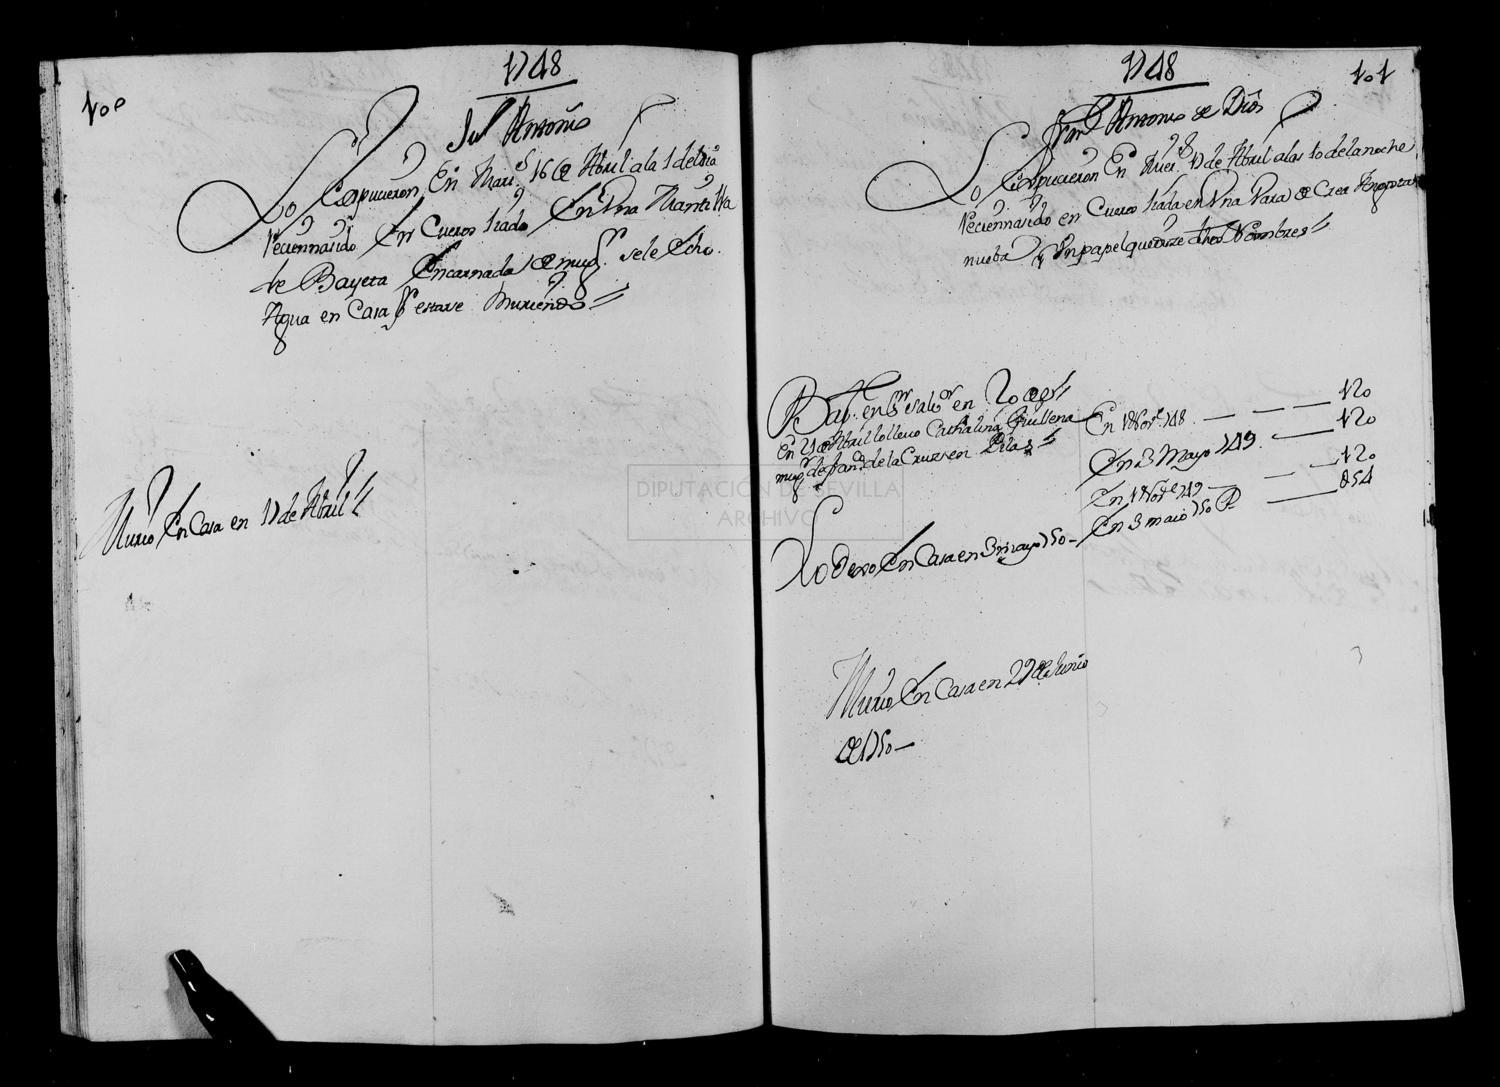 100
1748
Antonio
Lo Expusieron En Mart.s 16 de Abril ala 1 del dia
Reciennasido En Cueros liado En Vna Mantilla
de Bayeta Encarnada de mug.r sele Echo
Agua en Casa p.r estarse Muriendo
Murio En Casa en 17 de Abril
1748
101
Fran.co Antonio de Dios
Lo Expusieron En Mier.s 17 de Abril alas 10 de la noche
Reciennasido en Cueros liado en Vna de
nueba y Vn papel que dize dhos Nombres
Bap. en S.r Salv.or en 20 de
En 21 de Abril lo lleuo Cathalina Guillena
mug.r de Juan de la Cruz en Pilas
En 1 Nov.e 748 120
En 3 Mayo 749 120
En 1 Nov.e 749 120
En 3 maio 750 854
Lo Dexo En Casa en 3 mayo 750
Murio En Casa en 27 de Junio
de 1750
DIPUTACIÓN DE SEVILLA
ARCHIVO